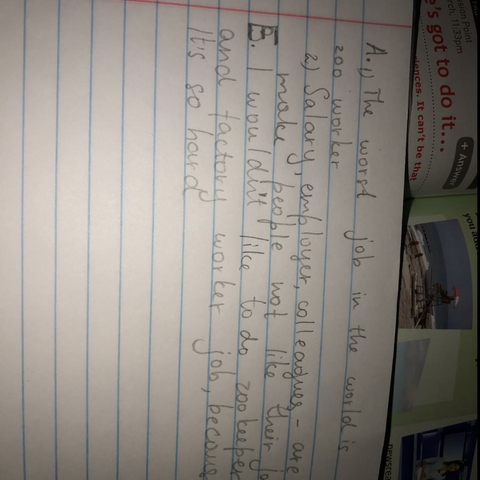 sson Point
rch, 11:33pm
e's got to do it...
iences. It can't be that
+ Answer
you and
A. 1) The worst job in the world is
zoo worker
2) Salary, employer, colleagues - are
make people not like their jo
B. I wouldn't like to do zookeeper
and factory worker job, because
It's so hard